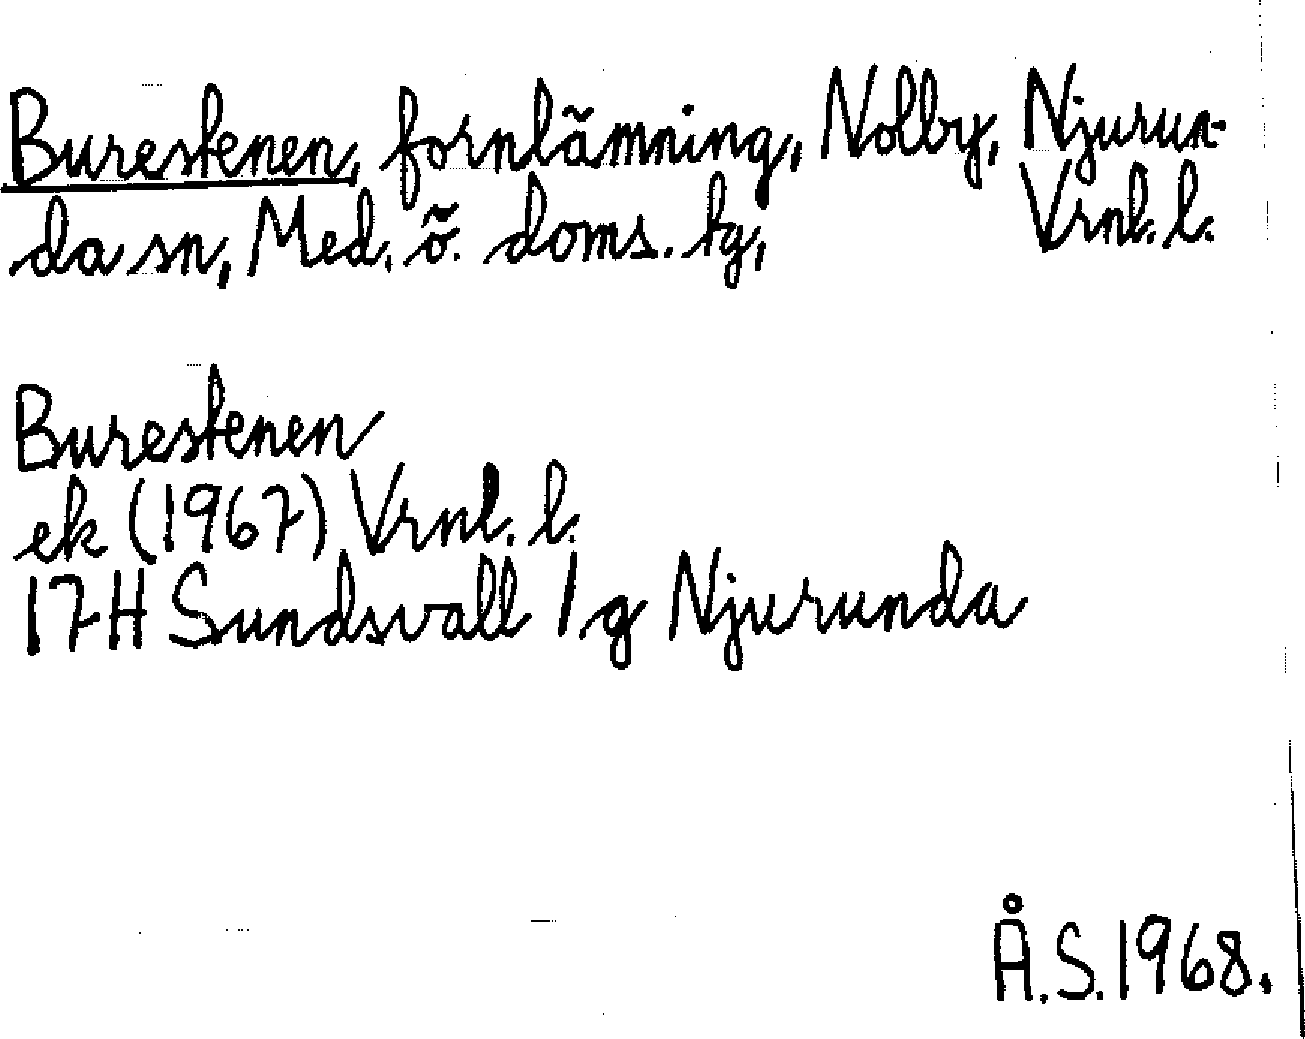 Burestenen, fornlämning, Nolby, Njurun-
da sn, Med. ö. doms. hg, Vrnl. l.
Burestenen
ek (1967) Vrnl. l.
17H Sundsvall 1 g Njurunda
Å.S. 1968.